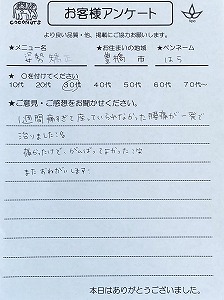 COCONUTS
お客様アンケート
より良い品質・他、掲載にご協力お願いします。
★メニュー名 ★お住まいの地域 ★ペンネーム
姿勢矯正 豊橋 市 はら
★〇を付けてください
10代 20代 30代 40代 50代 60代 70代~
★ご意見・ご感想をお聞かせください。
1週間痛すぎて座っていられなかった腰痛が一発で
治りました!!
痛かったけど、がんばってよかったです
またおねがいします!
本日はありがとうございました。